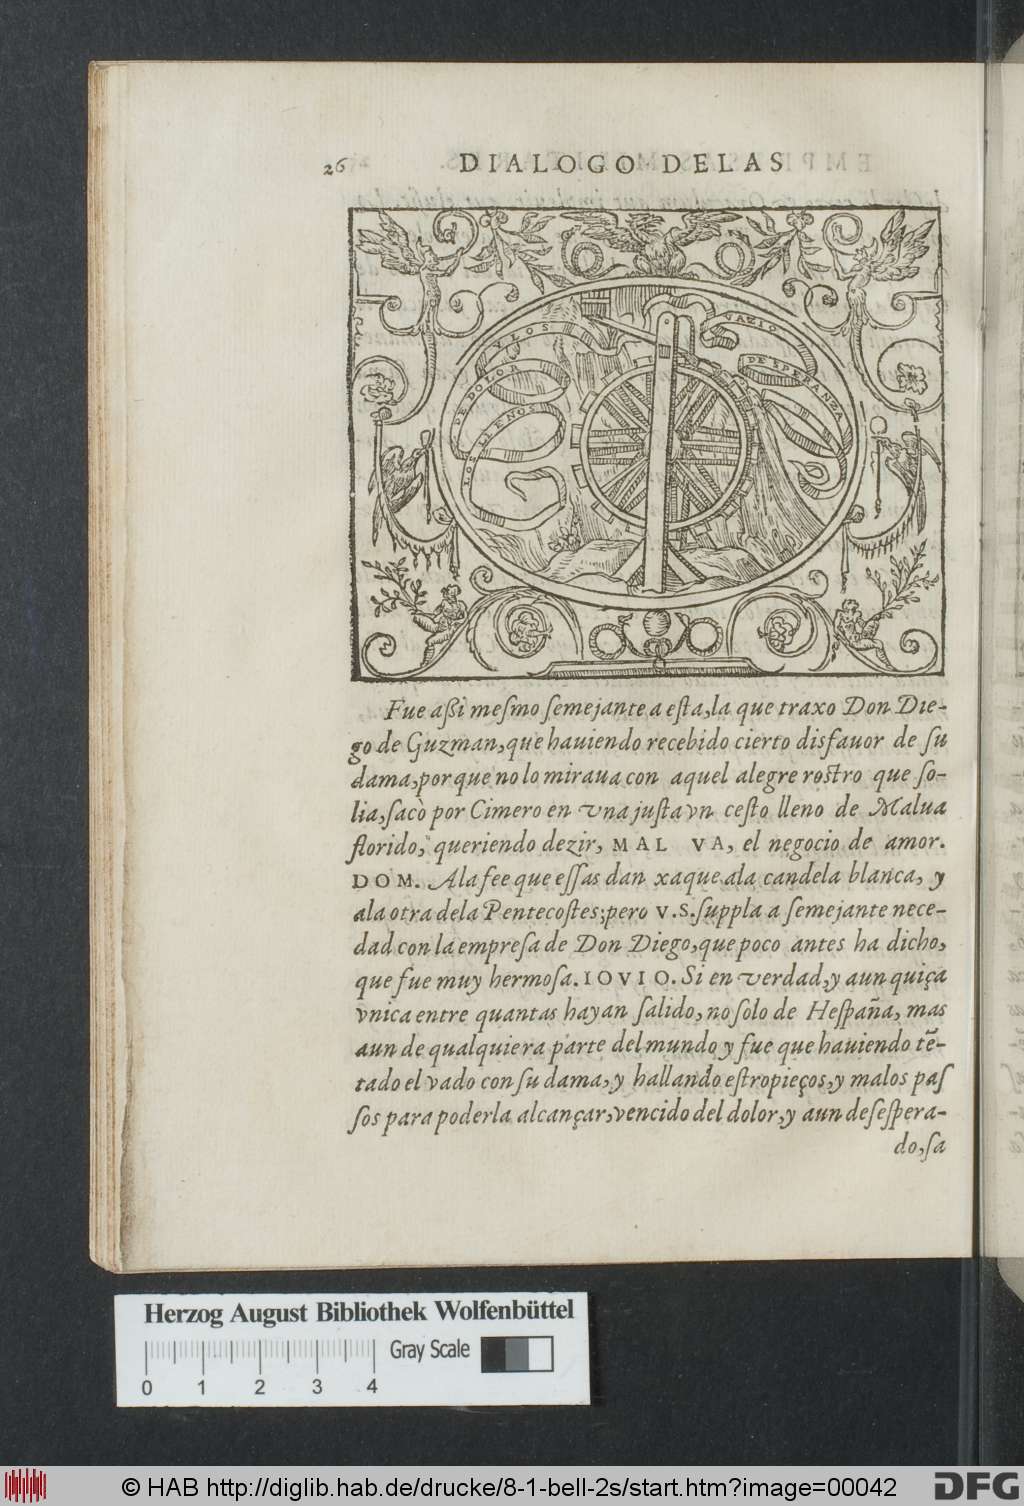 26 DIALOGO DE LAS
LOS LLENOS
DE DOLOR
Y LOS
VAZIO
DE SPERANZA
Fue aßi meſmo ſemejante a eſta, la que traxo Don Die-
go de Guzman, que hauiendo recebido cierto disfauor de ſu
dama, porque no lo miraua con aquel alegre roſtro que ſo-
lia, ſacò por Cimero en vna juſta vn ceſto lleno de Malua
florido, queriendo dezir, MAL VA, el negocio de amor.
DOM. Ala fee que eſſas dan xaque ala candela blanca, y
ala otra dela Pentecoſtes; pero V.S. ſuppla a ſemejante nece-
dad con la empreſa de Don Diego, que poco antes ha dicho,
que fue muy hermoſa. IOVIO. Si en verdad, y aun quiça
vnica entre quantas hayan ſalido, no ſolo de Heſpaña, mas
aun de qualquiera parte del mundo y fue que hauiendo tẽ-
tado el vado con ſu dama, y hallando eſtropieços, y malos paſ
ſos para poderla alcançar, vencido del dolor, y aun deſeſpera-
do, ſa
Herzog August Bibliothek Wolfenbüttel
Gray Scale
0 1 2 3 4
© HAB http://diglib.hab.de/drucke/8-1-bell-2s/start.htm?image=00042
DFG